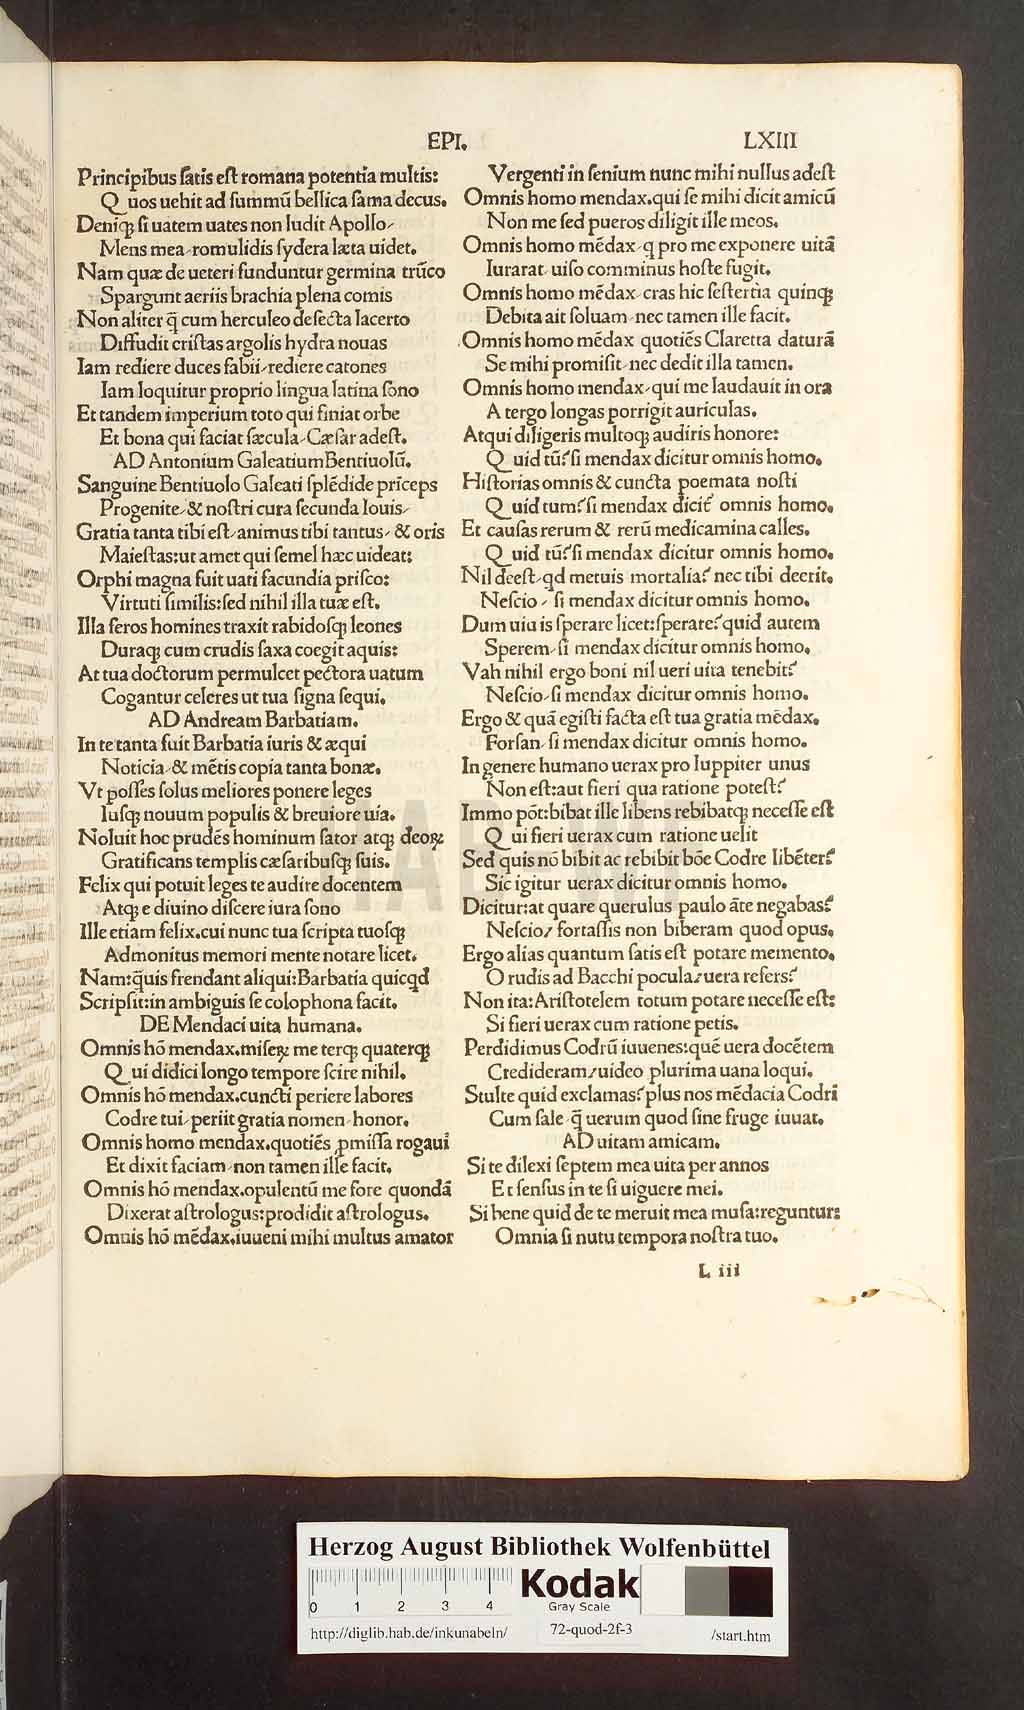 EPI. LXIII
Principibus ſatis eſt romana potentia multis:
Quos uehit ad ſummũ bellica fama decus.
Deniqꝫ ſi uatem uates non ludit Apollo/
Mens mea/romulidis ſydera læta uidet.
Nam quæ de ueteri funduntur germina trũco
Spargunt aeriis brachia plena comis
Non aliter q̃ cum herculeo deſecta lacerto
Diffudit criſtas argolis hydra nouas
Iam rediere duces fabii/rediere catones
Iam loquitur proprio lingua latina ſono
Et tandem imperium toto qui finiat orbe
Et bona qui faciat ſæcula/Cæſar adeſt.
AD Antonium Galeatium Bentiuolũ.
Sanguine Bentiuolo Galeati ſplẽdide prĩceps
Progenite/& noſtri cura ſecunda Iouis/
Gratia tanta tibi eſt/animus tibi tantus/& oris
Maieſtas:ut amet qui ſemel hæc uideat:
Orphi magna fuit uati facundia priſco:
Virtuti ſimilis:ſed nihil illa tuæ eſt.
Illa feros homines traxit rabidoſqꝫ leones
Duraqꝫ cum crudis ſaxa coegit aquis:
At tua doctorum permulcet pectora uatum
Cogantur celeres ut tua ſigna ſequi.
AD Andream Barbatiam.
In te tanta fuit Barbatia iuris & æqui
Noticia/& mẽtis copia tanta bonæ.
Vt poſſes ſolus meliores ponere leges
Iuſqꝫ nouum populis & breuiore uia.
Noluit hoc prudẽs hominum ſator atqꝫ deoꝝ
Gratificans templis cæſaribuſqꝫ ſuis.
Felix qui potuit leges te audire docentem
Atqꝫ e diuino diſcere iura ſono
Ille etiam felix.cui nunc tua ſcripta tuoſqꝫ
Admonitus memori mente notare licet.
Nam:q̃uis frendant aliqui:Barbatia quicqd
Scripſit:in ambiguis ſe colophona facit.
DE Mendaci uita humana.
Omnis hõ mendax.miſeꝝ me terqꝫ quaterqꝫ
Qui didici longo tempore ſcire nihil.
Omnis hõ mendax.cuncti periere labores
Codre tui/periit gratia nomen/honor.
Omnis homo mendax.quotiẽs ꝓmiſſa rogaui
Et dixit faciam/non tamen ille facit.
Omnis hõ mendax.opulentũ me fore quondã
Dixerat aſtrologus:prodidit aſtrologus.
Omnis hõ mẽdax.iuueni mihi multus amator
Vergenti in ſenium nunc mihi nullus adeſt
Omnis homo mendax.qui ſe mihi dicit amicũ
Non me ſed pueros diligit ille meos.
Omnis homo mẽdax/q pro me exponere uitã
Iurarat/uiſo comminus hoſte fugit.
Omnis homo mẽdax/cras hic ſeſtertia quinqꝫ
Debita ait ſoluam/nec tamen ille facit.
Omnis homo mẽdax quotiẽs Claretta daturã
Se mihi promiſit/nec dedit illa tamen.
Omnis homo mendax/qui me laudauit in ora
A tergo longas porrigit auriculas.
Atqui diligeris multoqꝫ audiris honore:
Quid tũ?ſi mendax dicitur omnis homo.
Hiſtorias omnis & cuncta poemata noſti
Quid tum?ſi mendax dicit᷑ omnis homo.
Et cauſas rerum & rerũ medicamina calles.
Quid tũ?ſi mendax dicitur omnis homo.
Nil deeſt/qd metuis mortalia? nec tibi deerit.
Neſcio/ ſi mendax dicitur omnis homo.
Dum uiuis ſperare licet:ſperate?quid autem
Sperem/ſi mendax dicitur omnis homo.
Vah nihil ergo boni nil ueri uita tenebit?
Neſcio/ſi mendax dicitur omnis homo.
Ergo & quã egiſti facta eſt tua gratia mẽdax.
Forſan/ſi mendax dicitur omnis homo.
In genere humano uerax pro Iuppiter unus
Non eſt:aut fieri qua ratione poteſt?
Immo põt:bibat ille libens rebibatqꝫ neceſſe eſt
Qui fieri uerax cum ratione uelit
Sed quis nõ bibit ac rebibit bõe Codre libẽter?
Sic igitur uerax dicitur omnis homo.
Dicitur:at quare querulus paulo ãte negabas?
Neſcio/ fortaſſis non biberam quod opus.
Ergo alias quantum ſatis eſt potare memento.
O rudis ad Bacchi pocula/uera refers?
Non ita:Ariſtotelem totum potare neceſſe eſt:
Si fieri uerax cum ratione petis.
Perdidimus Codrũ iuuenes:quẽ uera docẽtem
Credideram/uideo plurima uana loqui.
Stulte quid exclamas?plus nos mẽdacia Codri
Cum ſale/q̃ uerum quod ſine fruge iuuat.
AD uitam amicam.
Si te dilexi ſeptem mea uita per annos
Et ſenſus in te ſi uiguere mei.
Si bene quid de te meruit mea muſa:reguntur:
Omnia ſi nutu tempora noſtra tuo.
L iii
HAB-WF
Herzog August Bibliothek Wolfenbüttel
0 1 2 3 4
Kodak
Gray Scale
http://diglib.hab.de/inkunabeln/ 72-quod-2f-3 /start.htm